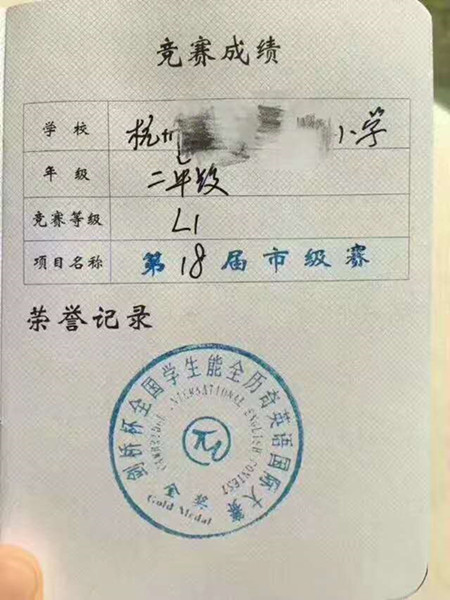 竞赛成绩
学校 杭州 小学
年级 二年级
竞赛等级 L1
项目名称 第18届市级赛
荣誉记录
剑桥杯全国学生能全历奇英语国际大赛
CAMBRIDGE INTERNATIONAL ENGLISH CONTEST
金奖
Gold Medal